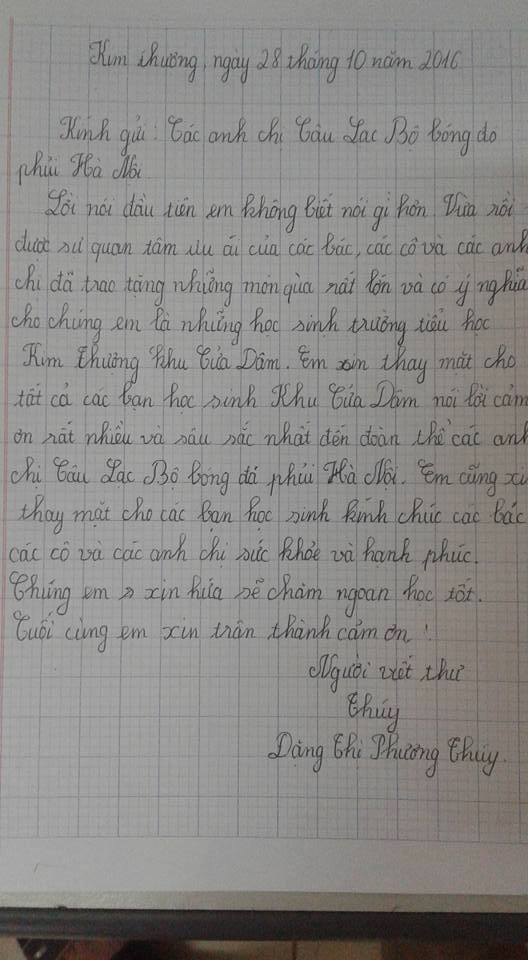 Kim thượng, ngày 28 tháng 10 năm 2016
Kính gửi: Các anh chị Câu Lạc Bộ bóng đá
phủi Hà Nội
Lời nói đầu tiên em không biết nói gì hơn. Vừa rồi
được sự quan tâm ưu ái của các bác, các cô và các anh
chị đã trao tặng những món quà rất lớn và có ý nghĩa
cho chúng em là những học sinh trường tiểu học
Kim thượng Khu Cửa Dâm. Em xin thay mặt cho
tất cả các bạn học sinh Khu Cửa Dâm nói lời cảm
ơn rất nhiều và sâu sắc nhất đến đoàn thể các anh
chị Câu Lạc Bộ bóng đá phủi Hà Nội. Em cũng xi
thay mặt cho các bạn học sinh kính chúc các bác
các cô và các anh chị sức khỏe và hạnh phúc.
Chúng em xin hứa sẽ chăm ngoan học tốt.
Cuối cùng em xin trân thành cảm ơn!
Người viết thư
Thúy
Đặng Thị Phương Thúy.